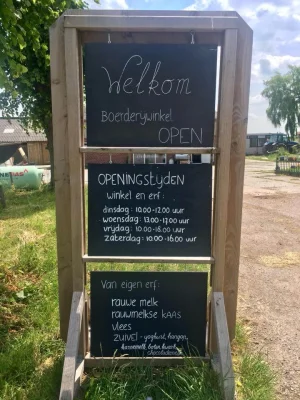 Welkom
Boerderijwinkel
OPEN
OPENINGSTIJDEN
winkel en erf:
dinsdag: 10:00-12:00 uur
woensdag: 13:00-17:00 uur
vrijdag: 10:00-16:00 uur
zaterdag: 10:00-16:00 uur
Van eigen erf:
rauwe melk
rauwmelkse KAAS
vlees
ZUIVEL - yoghurt, hangop,
karnemelk, boter, kwark